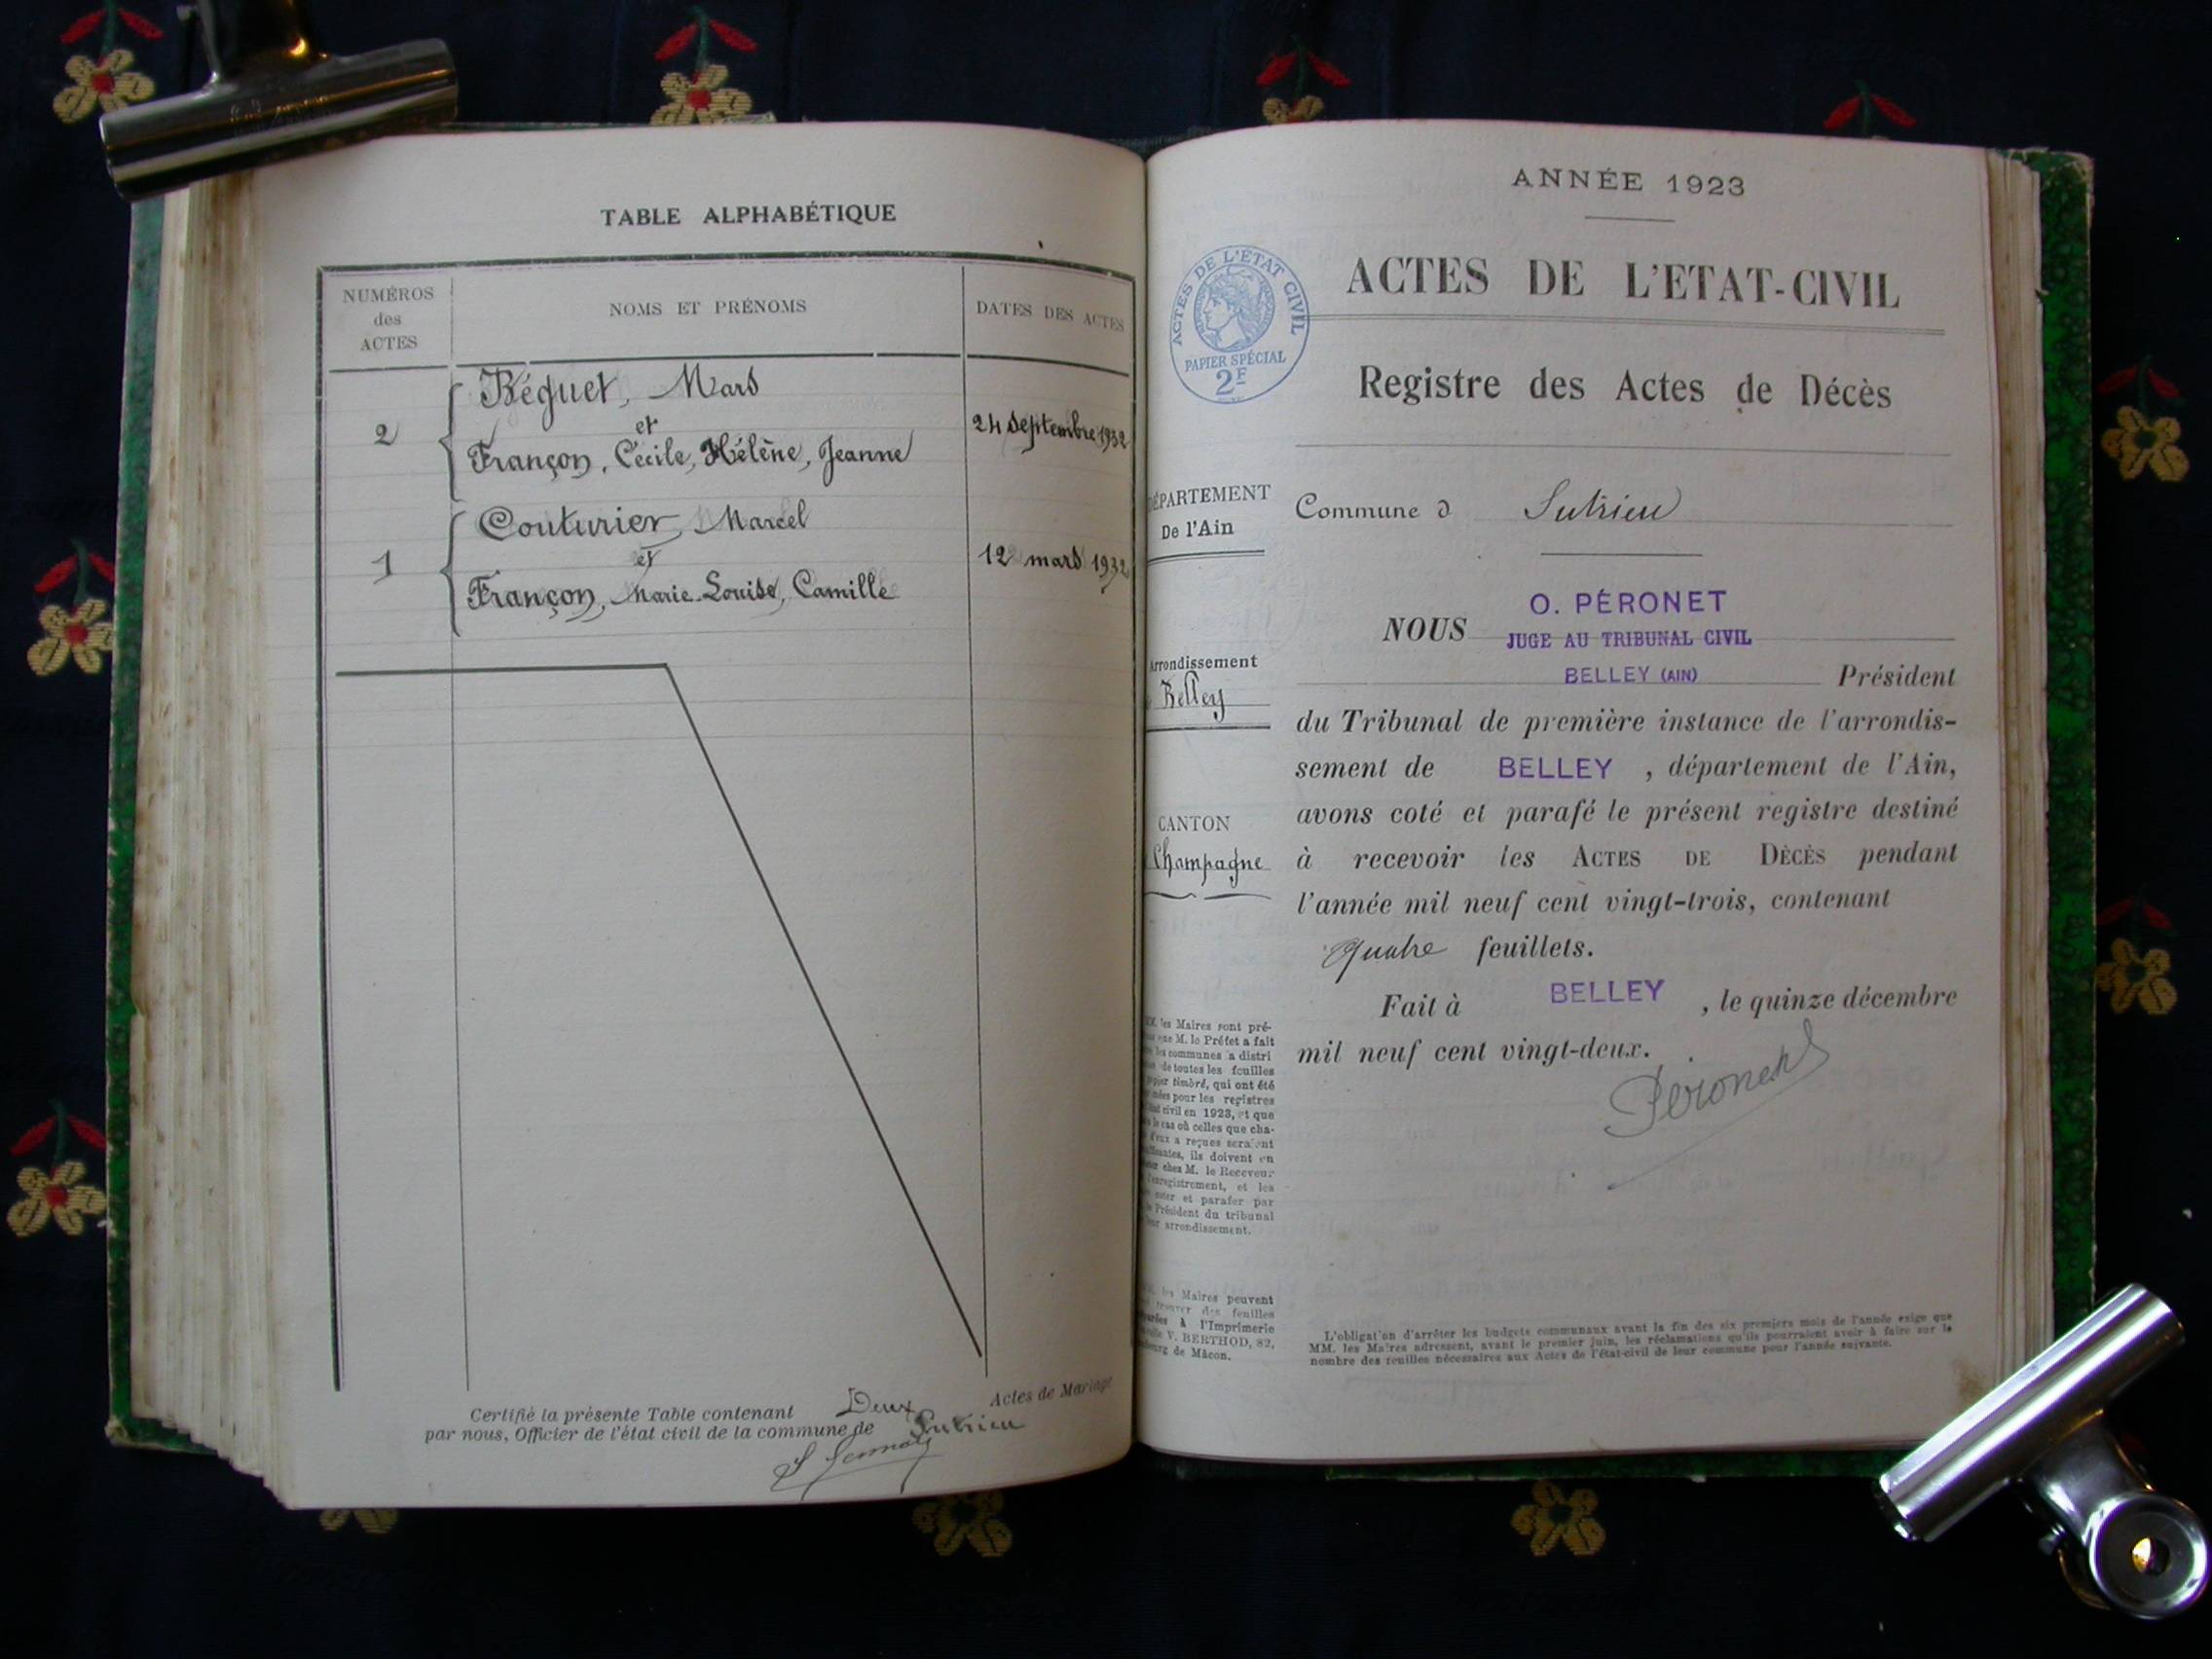 TABLE ALPHABÉTIQUE
NUMÉROS
des
ACTES
NOMS ET PRÉNOMS
DATES DES ACTES
Béguet, Mars
2
et
24 septembre 1932
Françon, Cécile, Hélène, Jeanne
Couturier, Marcel
1
et
12 mars 1932
Françon, Marie-Louise, Camille
Certifié la présente Table contenant Deux Actes de Mariage
par nous, Officier de l'état civil de la commune de Sutrieu
ANNÉE 1923
ACTES DE L'ÉTAT CIVIL
PAPIER SPÉCIAL
2F
ACTES DE L'ETAT-CIVIL
Registre des Actes de Décès
DÉPARTEMENT
De l'Ain
Commune d Sutrieu
O. PÉRONET
NOUS JUGE AU TRIBUNAL CIVIL
BELLEY (AIN) Président
Arrondissement
Belley
du Tribunal de première instance de l'arrondis-
sement de BELLEY, département de l'Ain,
avons coté et parafé le présent registre destiné
CANTON
Champagne
à recevoir les ACTES DE DÉCÈS pendant
l'année mil neuf cent vingt-trois, contenant
quatre feuillets.
Fait à BELLEY, le quinze décembre
mil neuf cent vingt-deux.
Péronet
MM. les Maires sont pré-
que M. le Préfet a fait
les communes a distri
de toutes les feuilles
papier timbré, qui ont été
pour les registres
civil en 1923, et que
le cas où celles que cha-
d'eux a reçues seraient
ils doivent en
chez M. le Receveur
l'enregistrement, et les
coter et parafer par
Président du tribunal
arrondissement.
les Maires peuvent
trouver des feuilles
à l'Imprimerie
V. BERTHOD, 82,
de Mâcon.
L'obligat'on d'arrêter les budgets communaux avant la fin des six premiers mois de l'année exige que
MM. les Maires adressent, avant le premier juin, les réclamations qu'ils pourraient avoir à faire sur le
nombre des feuilles nécessaires aux Actes de l'état-civil de leur commune pour l'année suivante.